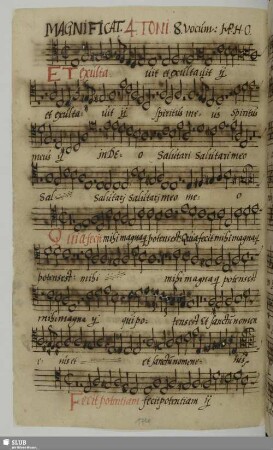 MAGNIFICAT. 4 TONI 8. Vocum. I.P.H.O.
Et exulta vit et exultavit ij
et exulta vit ij spiritus me us spiritus
meus ij in DE o Salutari Salutari meo
Sal Salutarj salutarj meo me o
Quia fecit mihi magna qui potens est Quia fecit mihi magna
potens est mihi mihi magna qui potens est
mihi magna ij qui po tens est Et sanctum nomen
e ius et et sanctum nomen
Fecit potentiam fecit potentiam ij
SLUB